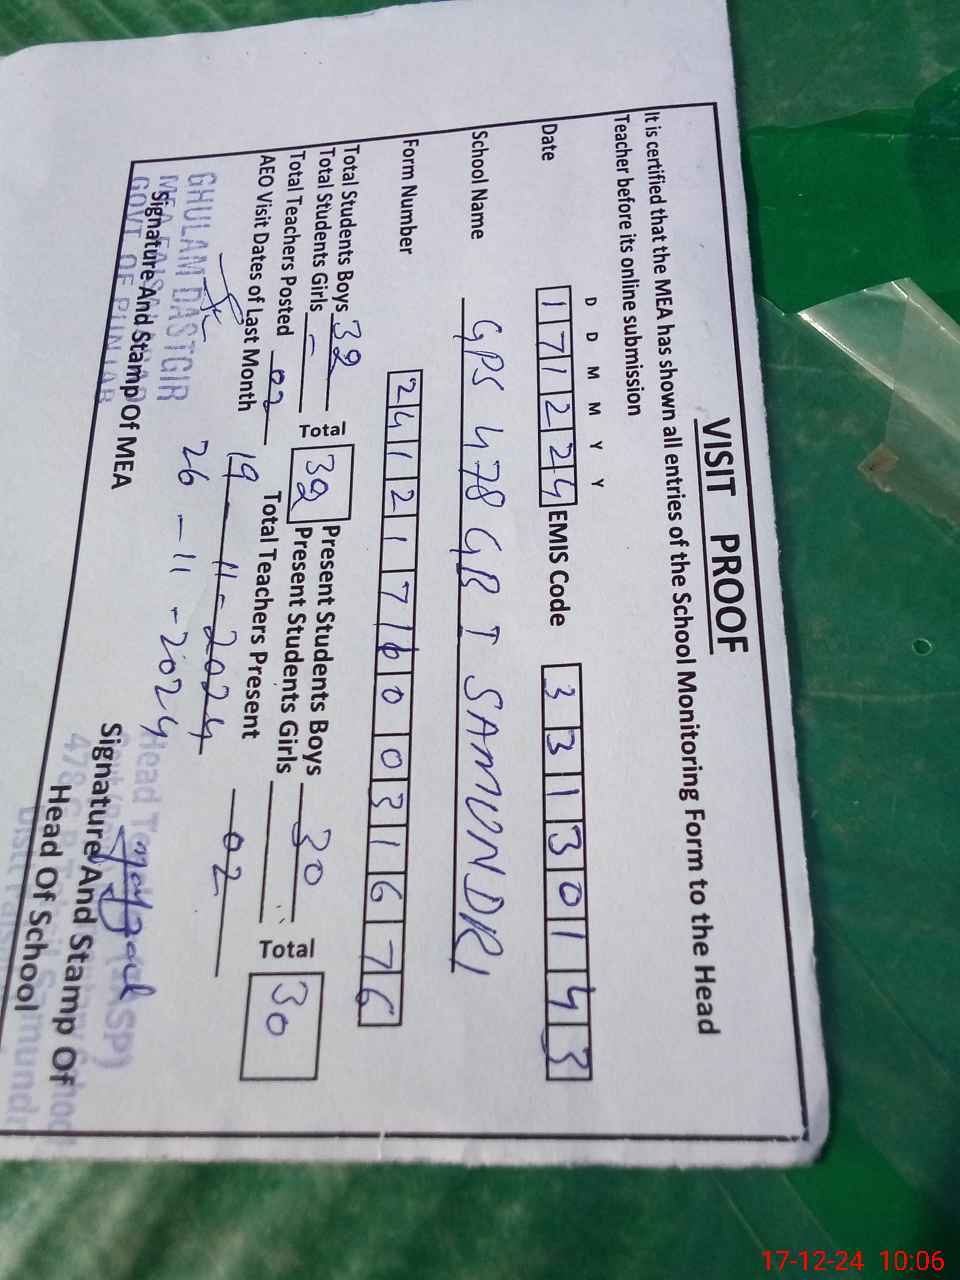 VISIT PROOF
It is certified that the MEA has shown all entries of the School Monitoring Form to the Head
Teacher before its online submission
D D M M Y Y
Date 171224 EMIS Code 33130143
School Name GPS 478 GB T SAMUNDRI
Form Number 2412176003 1676
Total Students Boys 32 Present Students Boys 30
Total Students Girls - Total 32 Present Students Girls Total 30
Total Teachers Posted 02 Total Teachers Present 02
AEO Visit Dates of Last Month 19-11-2024
26-11-2024
GHULAM DASTGIR
MEA
GOVT OF PUNJAB
Signature And Stamp Of MEA
Head
478 Samundri
Signature And Stamp Of
Head Of School
17-12-24 10:06